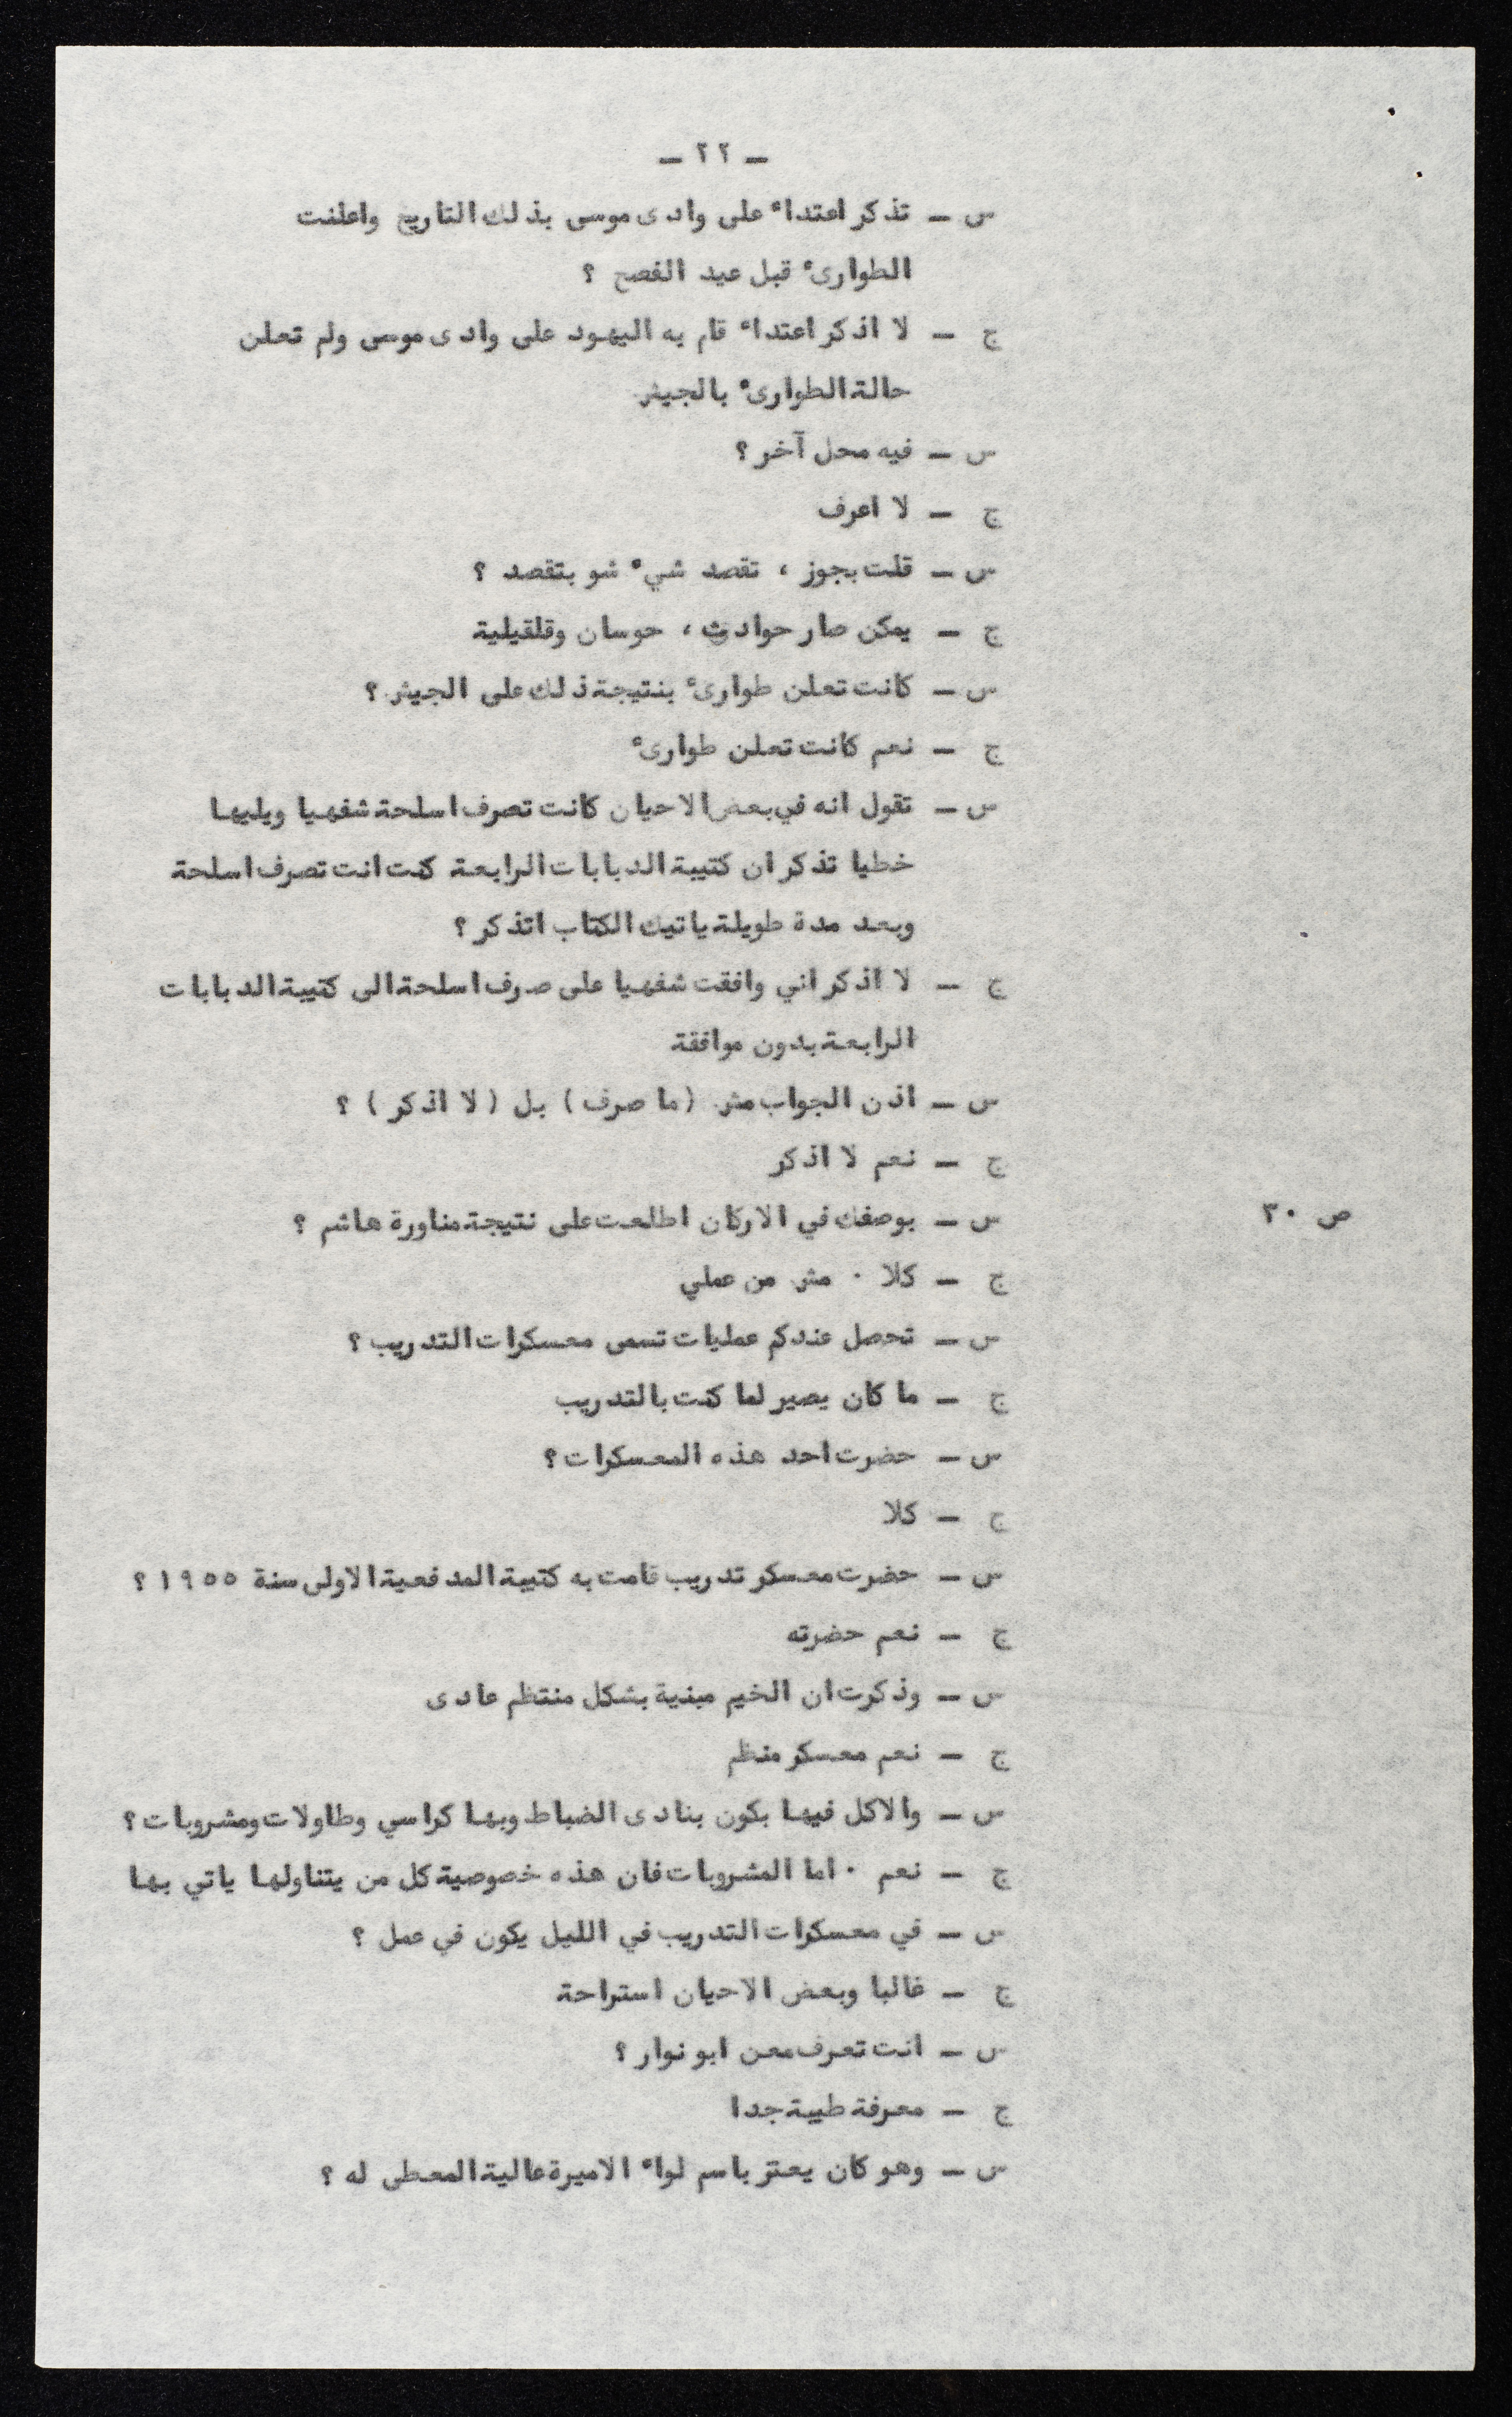 — ٢٢ —
س — تذكر اعتداء على وادى موسى بذلك التاريخ واعلنت
الطوارىء قبل عيد الفصح ؟
ج — لا اذكر اعتداء قام به اليهود على وادى موسى ولم تعلن
حالة الطوارىء بالجيش
س — فيه محل آخر ؟
ج — لا اعرف
س — قلت بجوز ، تقصد شيء شو بتقصد ؟
ج — يمكن صار حوادث ، حوسان وقلقيلية
س — كانت تعلن طوارىء بنتيجة ذلك على الجيش ؟
ج — نعم كانت تعلن طوارىء
س — تقول انه في بعض الاحيان كانت تصرف اسلحة شفهيا ويليها
خطيا تذكر ان كتيبة الدبابات الرابعة كنت انت تصرف اسلحة
وبعد مدة طويلة ياتيك الكتاب اتذكر ؟
ج — لا اذكر اني وافقت شفهيا على صرف اسلحة الى كتيبة الدبابات
الرابعة بدون موافقة
س — اذن الجواب مش (ما صرف) بل (لا اذكر) ؟
ج — نعم لا اذكر
ص ٣٠ س — بوصفك في الاركان اطلعت على نتيجة مناورة هاشم ؟
ج — كلا ٠ مش من عملي
س — تحصل عندكم عمليات تسمى معسكرات التدريب ؟
ج — ما كان يصير لما كنت بالتدريب
س — حضرت احد هذه المعسكرات ؟
ج — كلا
س — حضرت معسكر تدريب قامت به كتيبة المدفعية الاولى سنة ١٩٥٥ ؟
ج — نعم حضرته
س — وذكرت ان الخيم مبنية بشكل منتظم عادى
ج — نعم معسكر منظم
س — والاكل فيها بكون بنادى الضباط وبها كراسي وطاولات ومشروبات ؟
ج — نعم ٠ اما المشروبات فان هذه خصوصية كل من يتناولها ياتي بها
س — في معسكرات التدريب في الليل يكون في عمل ؟
ج — غالبا وبعض الاحيان استراحة
س — انت تعرف معن ابو نوار ؟
ج — معرفة طيبة جدا
س — وهو كان يعتز باسم لواء الاميرة عالية المعطى له ؟